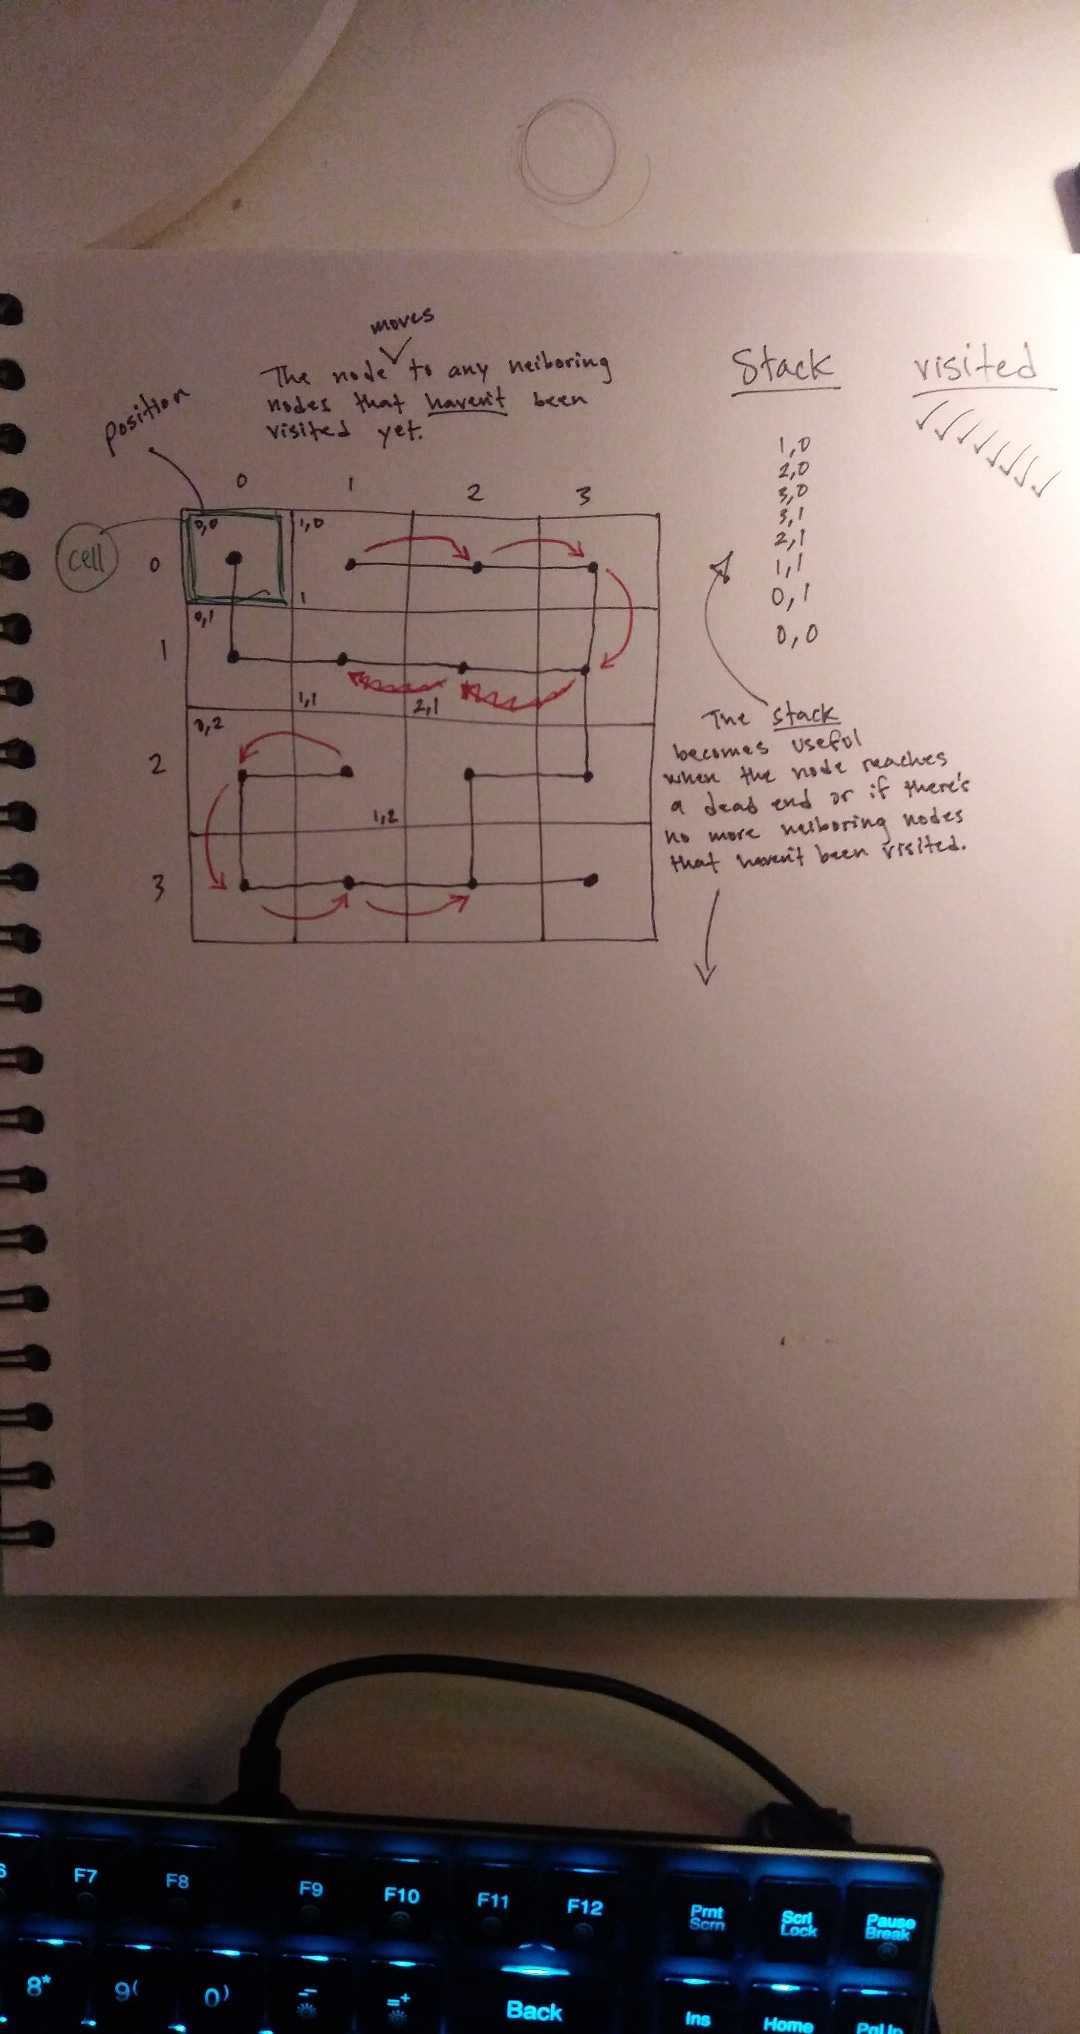 moves
The node to any neiboring
nodes that haven't been
visited yet.
position
cell
Stack
visited
1,0
2,0
3,0
3,1
2,1
1,1
0,1
0,0
0 1 2 3
0
1
2
3
0,0
1,0
1
0,1
1,1
2,1
0,2
1,2
The stack
becomes useful
when the node reaches
a dead end or if there's
no more neiboring nodes
that haven't been visited.
F7 F8 F9 F10 F11 F12
Prnt
Scrn
Scrl
Lock
Pause
Break
8*
9(
0)
-
=+
Back
Ins
Home
PgUp